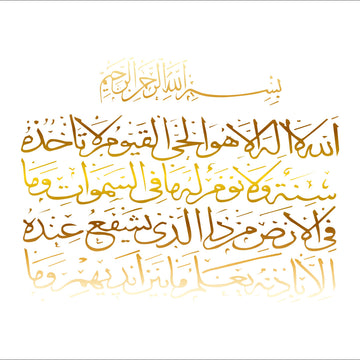 بسم الله الرحمن الرحيم
الله لا اله الا هو الحي القيوم لا تاخذه
سنة ولا نوم له ما في السموات وما
في الارض من ذا الذي يشفع عنده
الا باذنه يعلم ما بين ايديهم وما